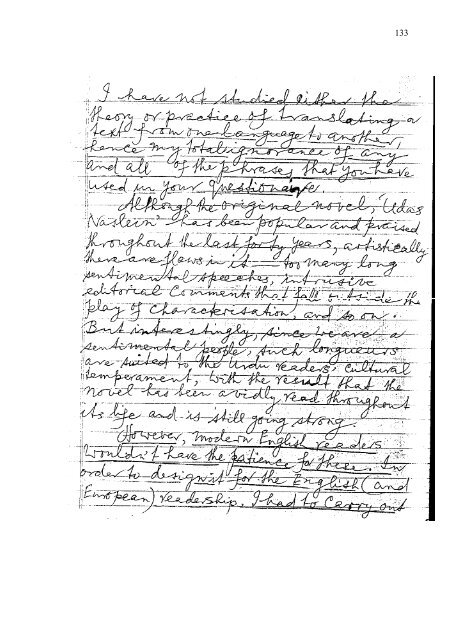 133
I have not studied either the
theory or practice of translating a
text from one language to another,
hence my total ignorance of any
and all of the phrases that you have
used in your Questionaire.
Although the original novel, 'Udas
Naslein' has been popular and praised
throughout the last forty years, artistically
there are flaws in it — too many long
sentimental speeches, intrusive
editorial comments that fall outside the
play of characterisation, and so on.
But interestingly, since we are a
sentimental people, such longueurs
are suited to the Urdu readers' cultural
temperament, with the result that the
novel has been avidly read throughout
its life and is still going strong.
However, modern English readers
wouldn't have the patience for these. In
order to design it for the English (and
European) readership, I had to carry out